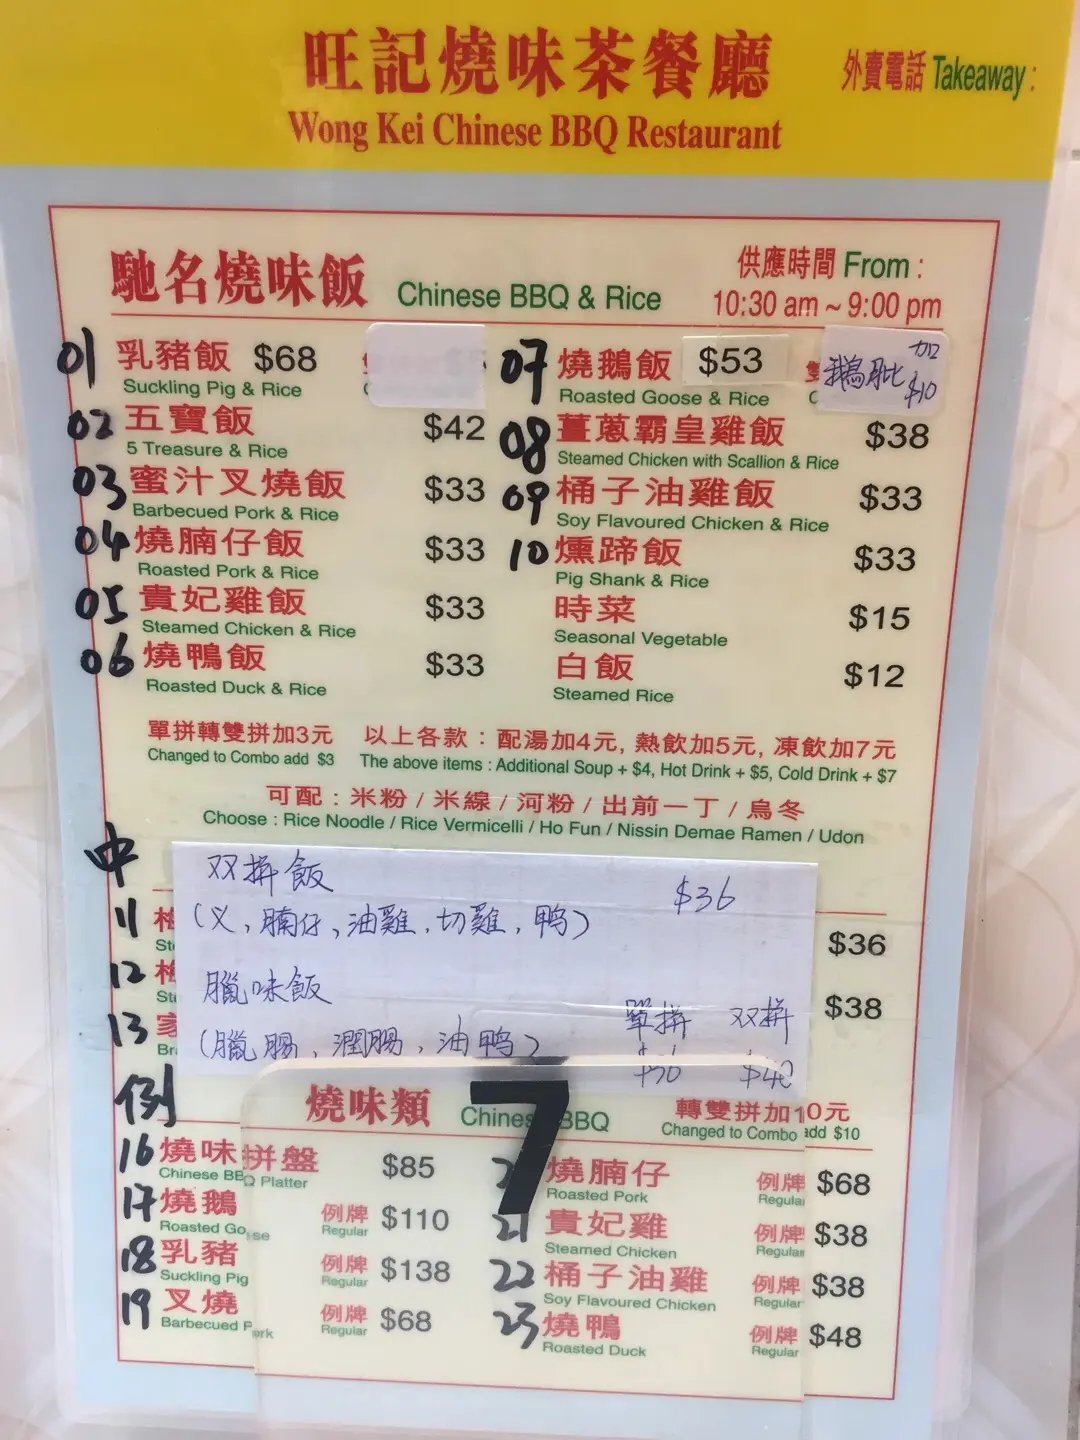 旺記燒味茶餐廳
外賣電話 Takeaway :
Wong Kei Chinese BBQ Restaurant
馳名燒味飯 Chinese BBQ & Rice
供應時間 From :
10:30 am ~ 9:00 pm
01 乳豬飯 $68
Suckling Pig & Rice
02 五寶飯 $42
5 Treasure & Rice
03 蜜汁叉燒飯 $33
Barbecued Pork & Rice
04 燒腩仔飯 $33
Roasted Pork & Rice
05 貴妃雞飯 $33
Steamed Chicken & Rice
06 燒鴨飯 $33
Roasted Duck & Rice
07 燒鵝飯 $53
Roasted Goose & Rice
鵝髀 加 $10
08 薑蔥霸皇雞飯 $38
Steamed Chicken with Scallion & Rice
09 桶子油雞飯 $33
Soy Flavoured Chicken & Rice
10 燻蹄飯 $33
Pig Shank & Rice
時菜 $15
Seasonal Vegetable
白飯 $12
Steamed Rice
單拼轉雙拼加3元 以上各款：配湯加4元, 熱飲加5元, 凍飲加7元
Changed to Combo add $3 The above items : Additional Soup + $4, Hot Drink + $5, Cold Drink + $7
可配：米粉 / 米線 / 河粉 / 出前一丁 / 烏冬
Choose : Rice Noodle / Rice Vermicelli / Ho Fun / Nissin Demae Ramen / Udon
中
双拼飯 $36
(义, 腩仔, 油雞, 切雞, 鸭)
臘味飯
單拼 双拼
(臘腸, 潤腸, 油鸭)
$36 $40
11 梅 $36
St
12 梅 $38
St
13 家
Br
例
7
燒味類 Chinese BBQ
轉雙拼加10元
Changed to Combo add $10
16 燒味拼盤 $85
Chinese BBQ Platter
17 燒鵝 例牌 $110
Roasted Goose Regular
18 乳豬 例牌 $138
Suckling Pig Regular
19 叉燒 例牌 $68
Barbecued Pork Regular
燒腩仔 例牌 $68
Roasted Pork Regular
21 貴妃雞 例牌 $38
Steamed Chicken Regular
22 桶子油雞 例牌 $38
Soy Flavoured Chicken Regular
23 燒鴨 例牌 $48
Roasted Duck Regular